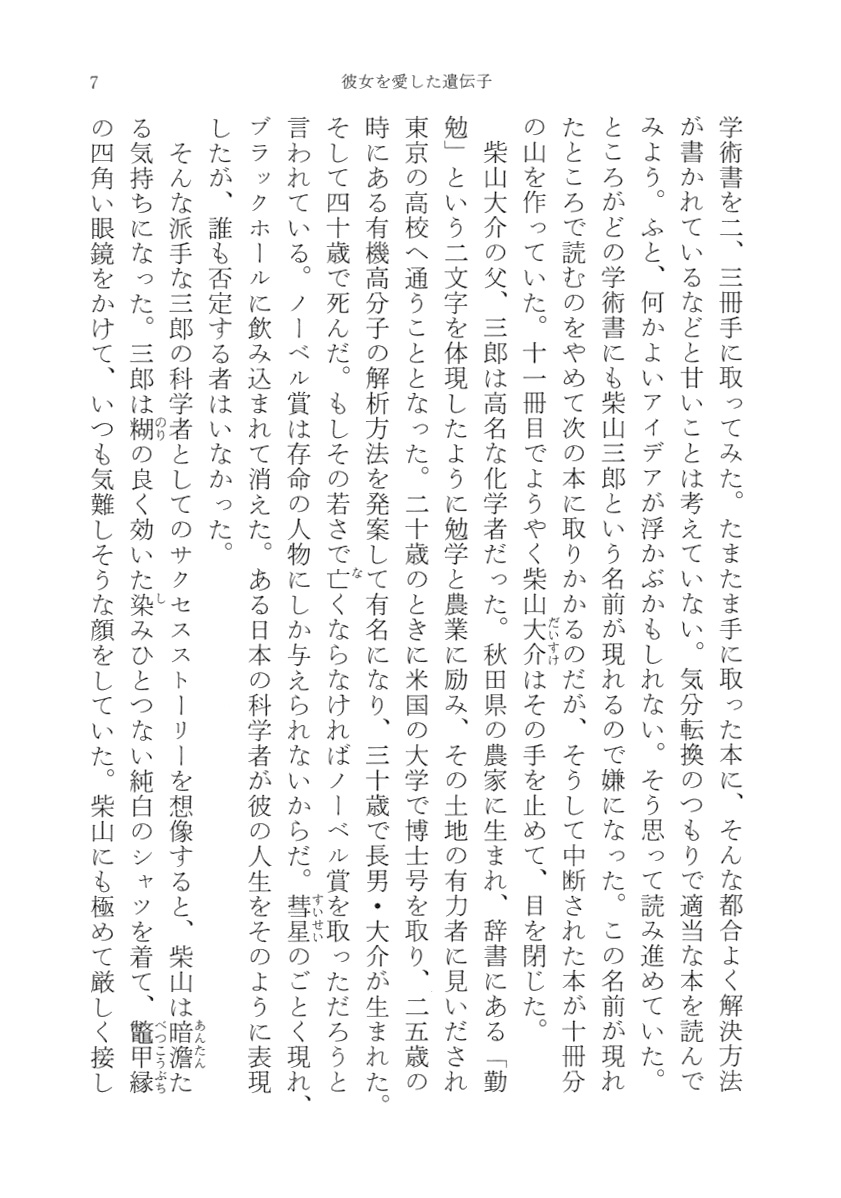 7
彼女を愛した遺伝子
学術書を二、三冊手に取ってみた。たまたま手に取った本に、そんな都合よく解決方法
が書かれているなどと甘いことは考えていない。気分転換のつもりで適当な本を読んで
みよう。ふと、何かよいアイデアが浮かぶかもしれない。そう思って読み進めていた。
ところがどの学術書にも柴山三郎という名前が現れるので嫌になった。この名前が現れ
たところで読むのをやめて次の本に取りかかるのだが、そうして中断された本が十冊分
の山を作っていた。十一冊目でようやく柴山大介はその手を止めて、目を閉じた。
だいすけ
柴山大介の父、三郎は高名な化学者だった。秋田県の農家に生まれ、辞書にある「勤
勉」という二文字を体現したように勉学と農業に励み、その土地の有力者に見いだされ
東京の高校へ通うこととなった。二十歳のときに米国の大学で博士号を取り、二五歳の
時にある有機高分子の解析方法を発案して有名になり、三十歳で長男・大介が生まれた。
そして四十歳で死んだ。もしその若さで亡くならなければノーベル賞を取っただろうと
な
言われている。ノーベル賞は存命の人物にしか与えられないからだ。彗星のごとく現れ、
すいせい
ブラックホールに飲み込まれて消えた。ある日本の科学者が彼の人生をそのように表現
したが、誰も否定する者はいなかった。
そんな派手な三郎の科学者としてのサクセスストーリーを想像すると、柴山は暗澹た
あんたん
る気持ちになった。三郎は糊の良く効いた染みひとつない純白のシャツを着て、鼈甲縁
のり
し
べつこうぶち
の四角い眼鏡をかけて、いつも気難しそうな顔をしていた。柴山にも極めて厳しく接し